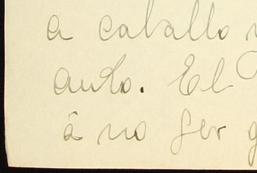 a caballo
auto. El
à no ser